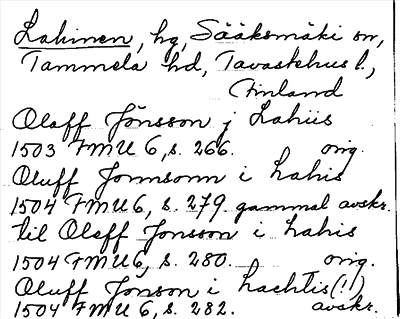 Lahinen, hg, Sääksmäki sn,
Tammela hd, Tavastehus l.,
Finland
Olaff Jönsson j Lahiis
1503 FMU 6, s. 266. orig.
Oluff Jomsonn i Lahis
1504 FMU 6, s. 279. gammal avskr.
til Olaff Jonsson i Lahis
1504 FMU 6, s. 280. orig.
Oluff Jonson i Lachtis (!)
1504 FMU 6, s. 282. avskr.